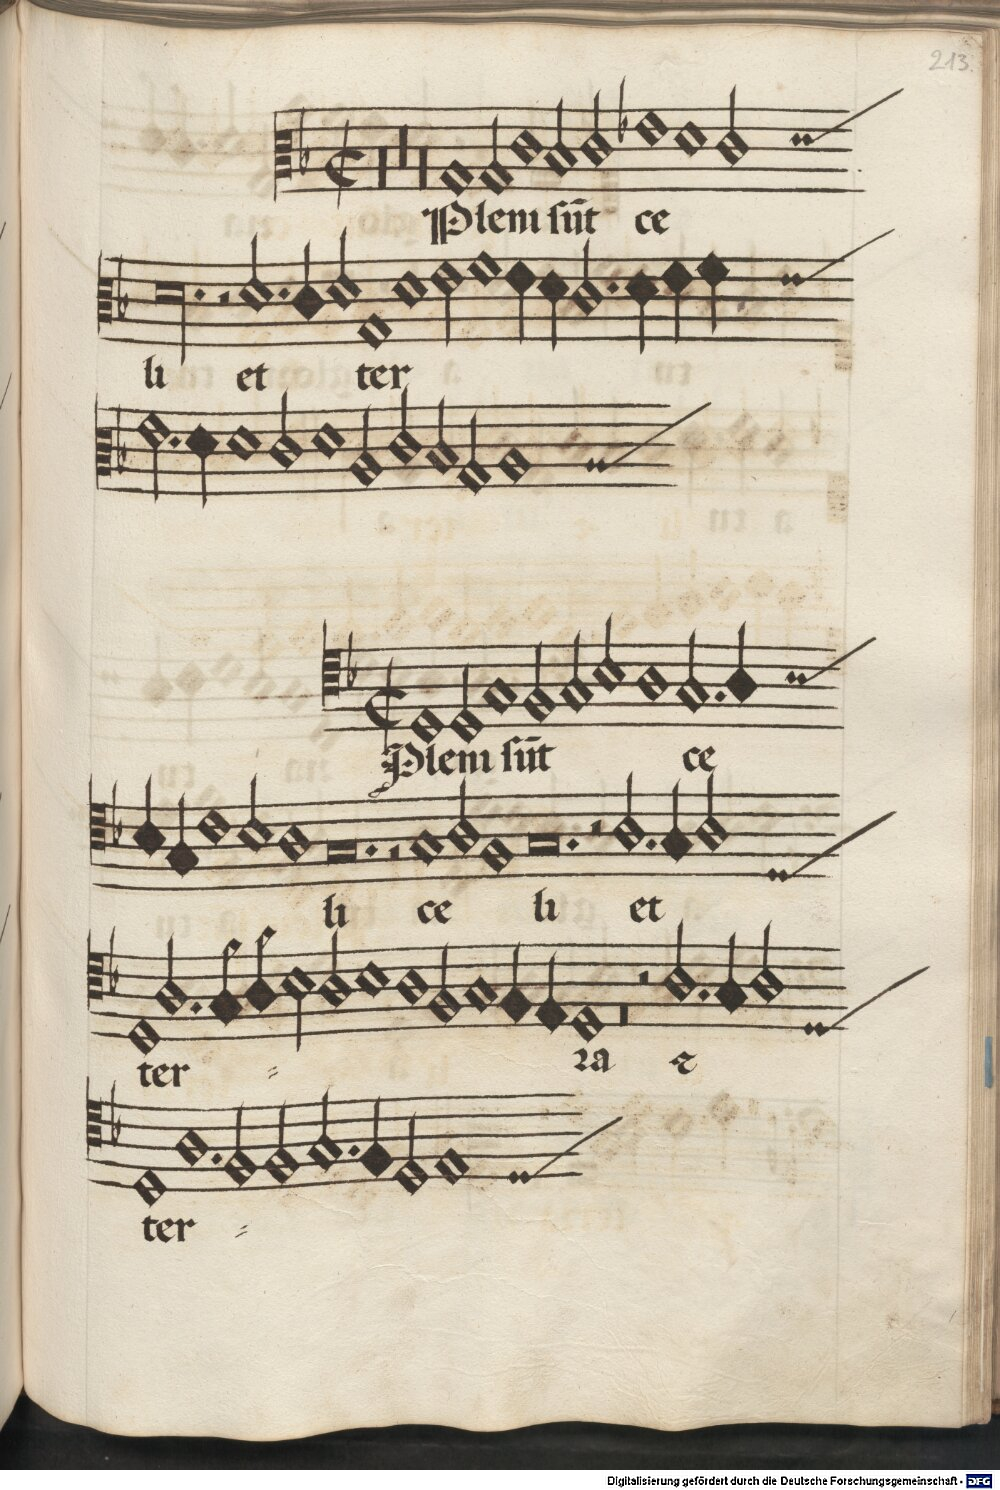 213.
Plem sūt ce
li et ter
Plem sūt ce
li ce li et
ter = ra ⁊
ter =
Digitalisierung gefördert durch die Deutsche Forschungsgemeinschaft - DFG